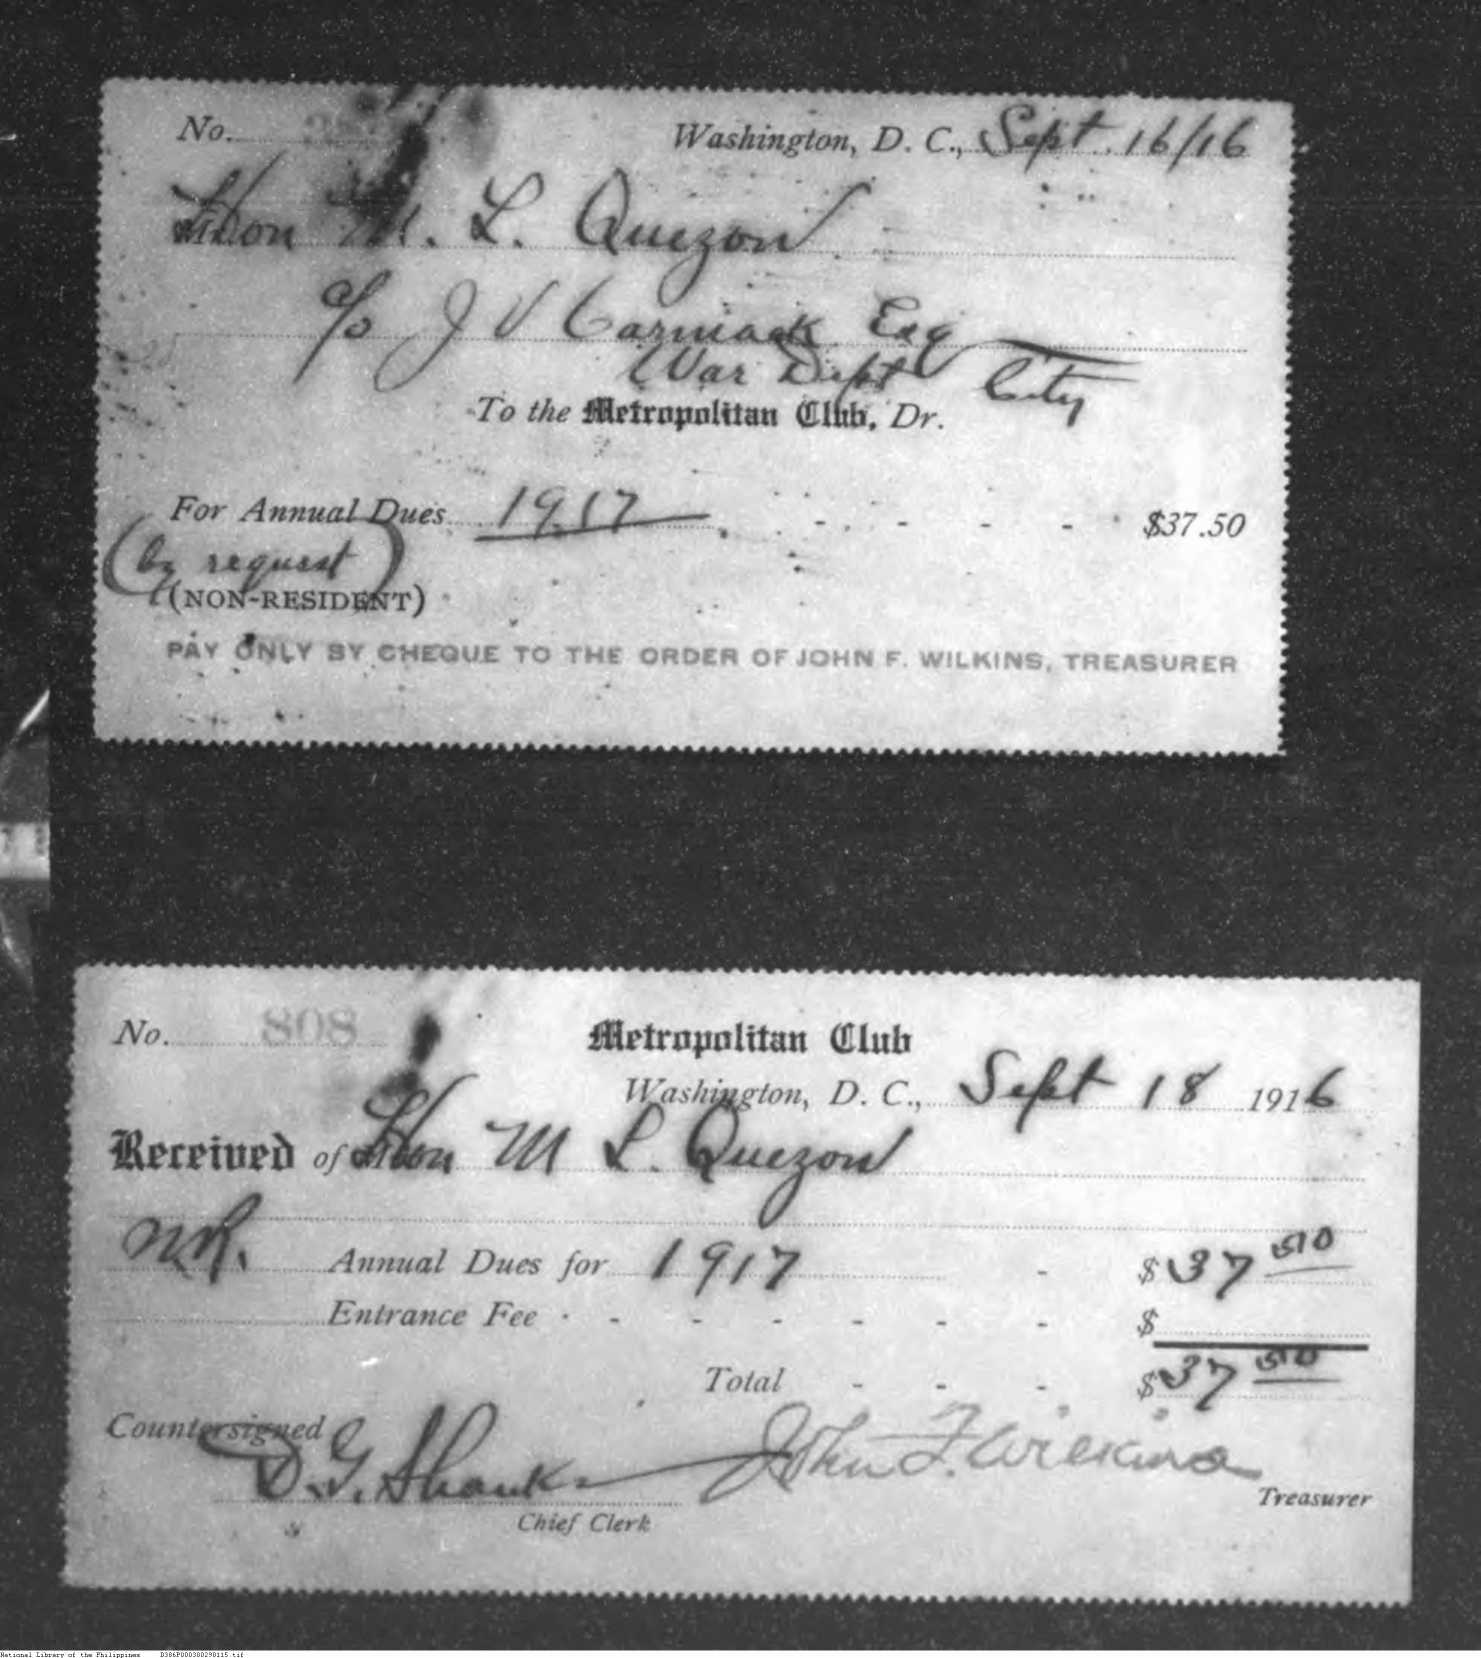 No. Washington, D. C., Sept. 16/16
Hon M. L. Quezon
c/o J V Carmack Esq
War Dept City
To the Metropolitan Club, Dr.
For Annual Dues 1917 - - - - $37.50
(by request)
(NON-RESIDENT)
PAY ONLY BY CHEQUE TO THE ORDER OF JOHN F. WILKINS, TREASURER
No. 808 Metropolitan Club
Washington, D. C., Sept 18 1916
Received of Hon M L. Quezon
N.R. Annual Dues for 1917 - $37 50
Entrance Fee - - - - - - - $
Total - - - $37 50
Countersigned
D. G. Shanks John F. Wilkins
Treasurer
Chief Clerk
National Library of the Philippines D386P000300290115.tif